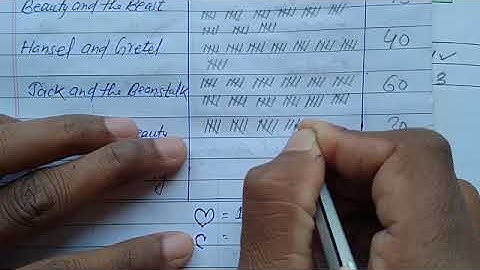 Beauty and the Beast
Hansel and Gretel 40
Jack and the Beanstalk 60
Beauty
3
= 1
=